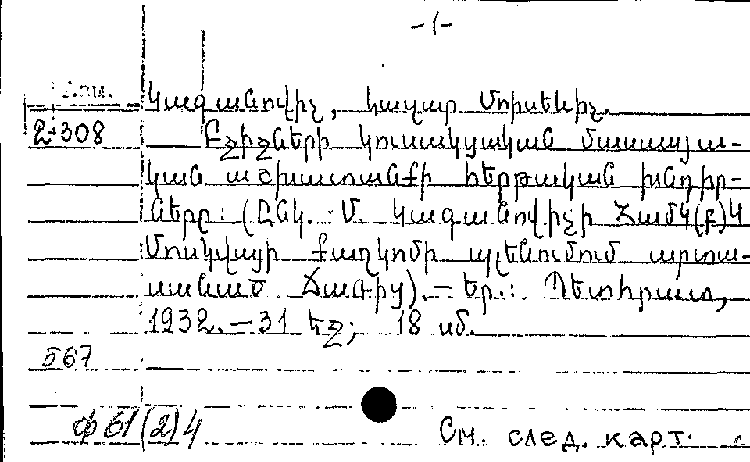 -1-
Կագանովիչ, Լազար Մոիսեևիչ.
2-308
Բջիջների կուսակցական մասսայա-
կան աշխատանքի հերթական խնդիր-
ները: (Ընկ. Մ. Կագանովիչի ՀամԿ(բ)Կ
Մոսկվայի քաղկոմի պլենումում արտա-
սանած ճառից).- Եր.: Պետհրատ,
1932.-31 էջ; 18 սմ.
567
ф 61(2)4
См. след. карт.